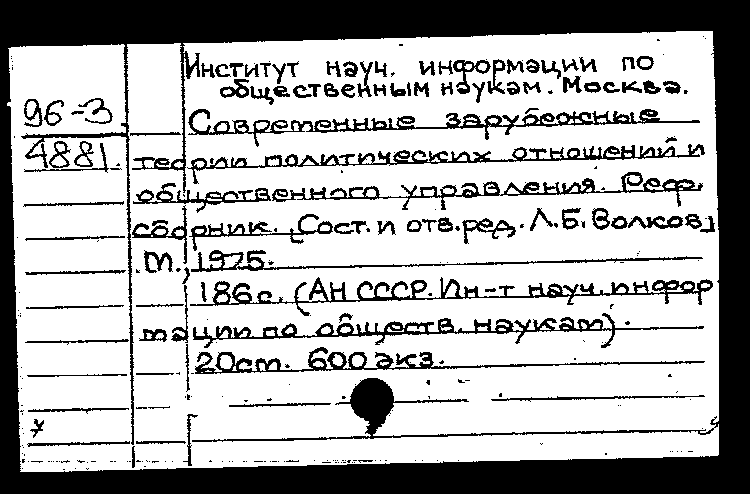 Институт науч. информации по
общественным наукам. Москва.
96-3
4881.
Современные зарубежные
теории политических отношений и
общественного управления. Реф.
сборник. [Сост. и отв. ред. Л.Б. Волков]
М., 1975.
186с. (АН СССР. Ин-т науч. инфор
мации по обществ. наукам).
20см. 600 экз.